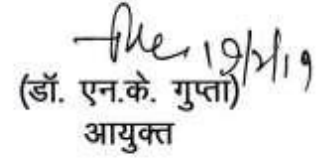 19/2/19
(डॉ. एन.के. गुप्ता)
आयुक्त